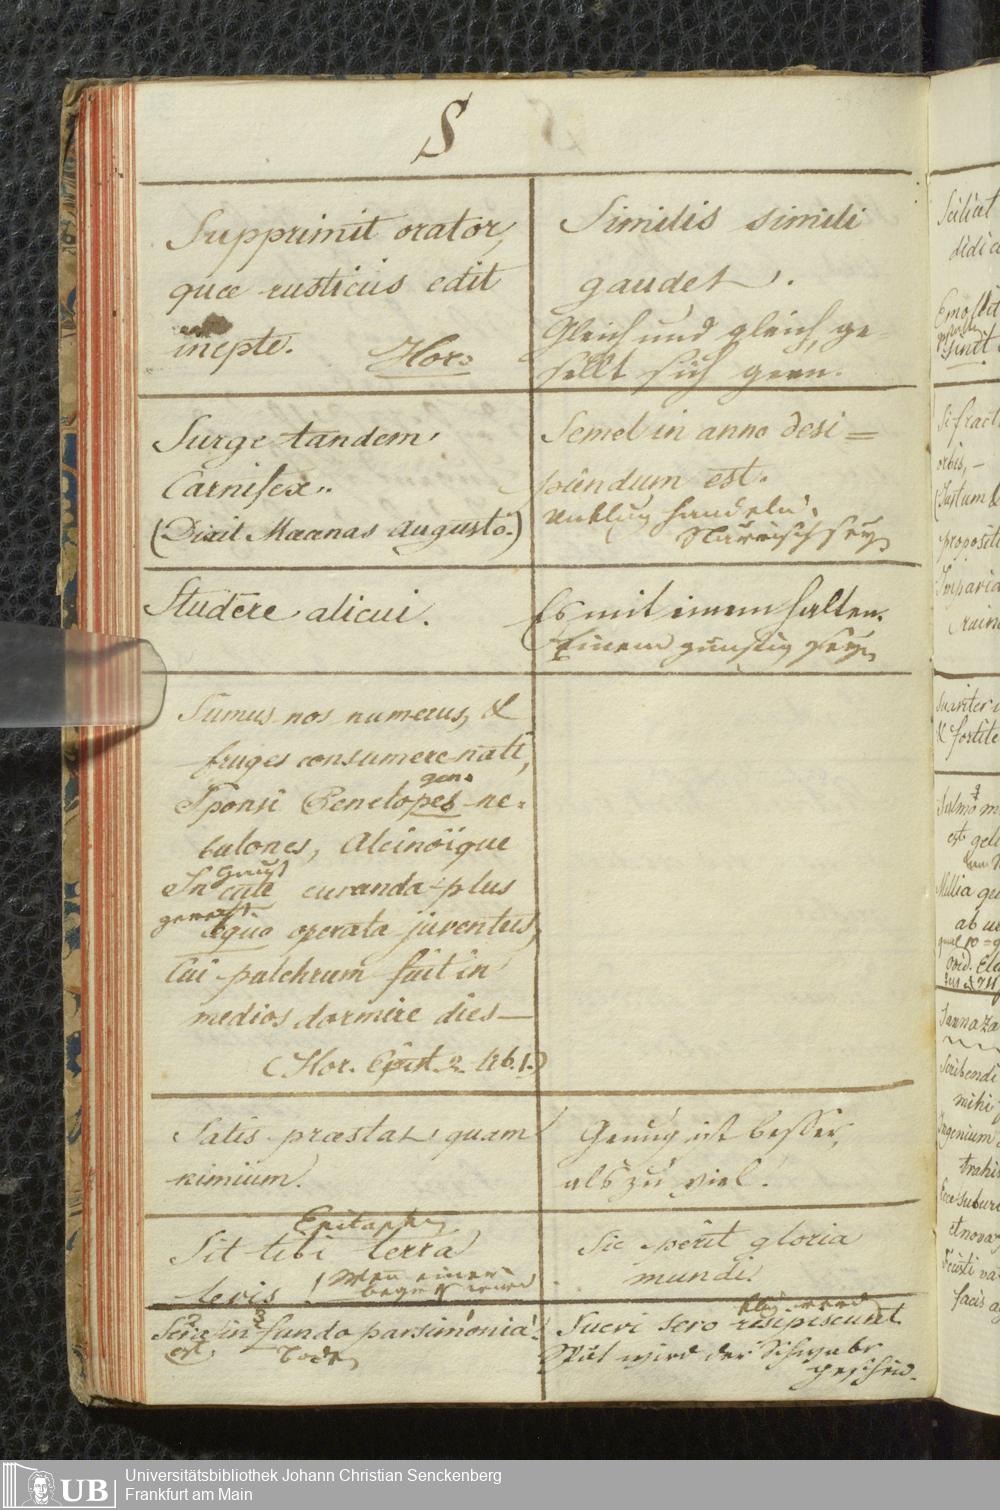 S
Supprimit orator,
quae rusticus edit
inepte. Hor:
Similis simili
gaudet.
Gleich und gleich, ge-
sellt sich gern.
Surge tandem
Carnifex.
(Dixit Maecenas Augusto.)
Semel in anno desi=
piendum est.
Unklug handeln.
Närrisch seyn
Studere alicui.
Es mit einem halten.
Einem günstig seyn
Sumus nos numerus, &
fruges consumere nati,
gen.
Sponsi Penelopes ne-
bulones, Alcinoïque
Haut
In cute curanda plus
gerecht.
aequo operata juventus,
Cui pulchrum fuit in
medios dormire dies—
(Hor. Epist. 2. lib. 1.)
Satis praestat, quam
nimium.
Genug ist besser,
als zu viel.
Epitaph
Sit tibi terra
levis
Wenn einer
begraben
Sic perit gloria
mundi.
Sera in fundo parsimonia.
est. Boden
klug
Suevi sero resipiscunt
Spät wird der Schwabe
gescheid.
Scilicet
Emollit
Si fract
orbis, —
(Justum &
propositi
Suaviter i
& fortite
Sulmo m
est geli
Millia
ab u
Ovid. El
Sannaza
Scribendi
mihi
Ingenium
trahi
Ecce
et nova
facis
Universitätsbibliothek Johann Christian Senckenberg
UB Frankfurt am Main